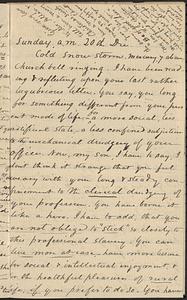 Sunday, a.m. 20th Dec
Cold Snow Storm, mercury 7 above
Church bell ringing. I have been read
ing & reflecting upon your last rather
lugubrious letter. You say, you long
for something different from your pres
ent mode of life - a more social, less
a less confined subjection
to the mechanical drudgery of your
office. Now, my Son, I have to say, I
don't think it strange that you feel
weary with your long & steady con
finement to the clerical drudgery of
your profession. You have borne it
like a hero. I have to add, that you
are not obliged to stick so closely to
this professional slavery. You can
have more leisure
for social & intellectual enjoyment &
to the healthful pleasures of rural
life, if you prefer to do so. You have